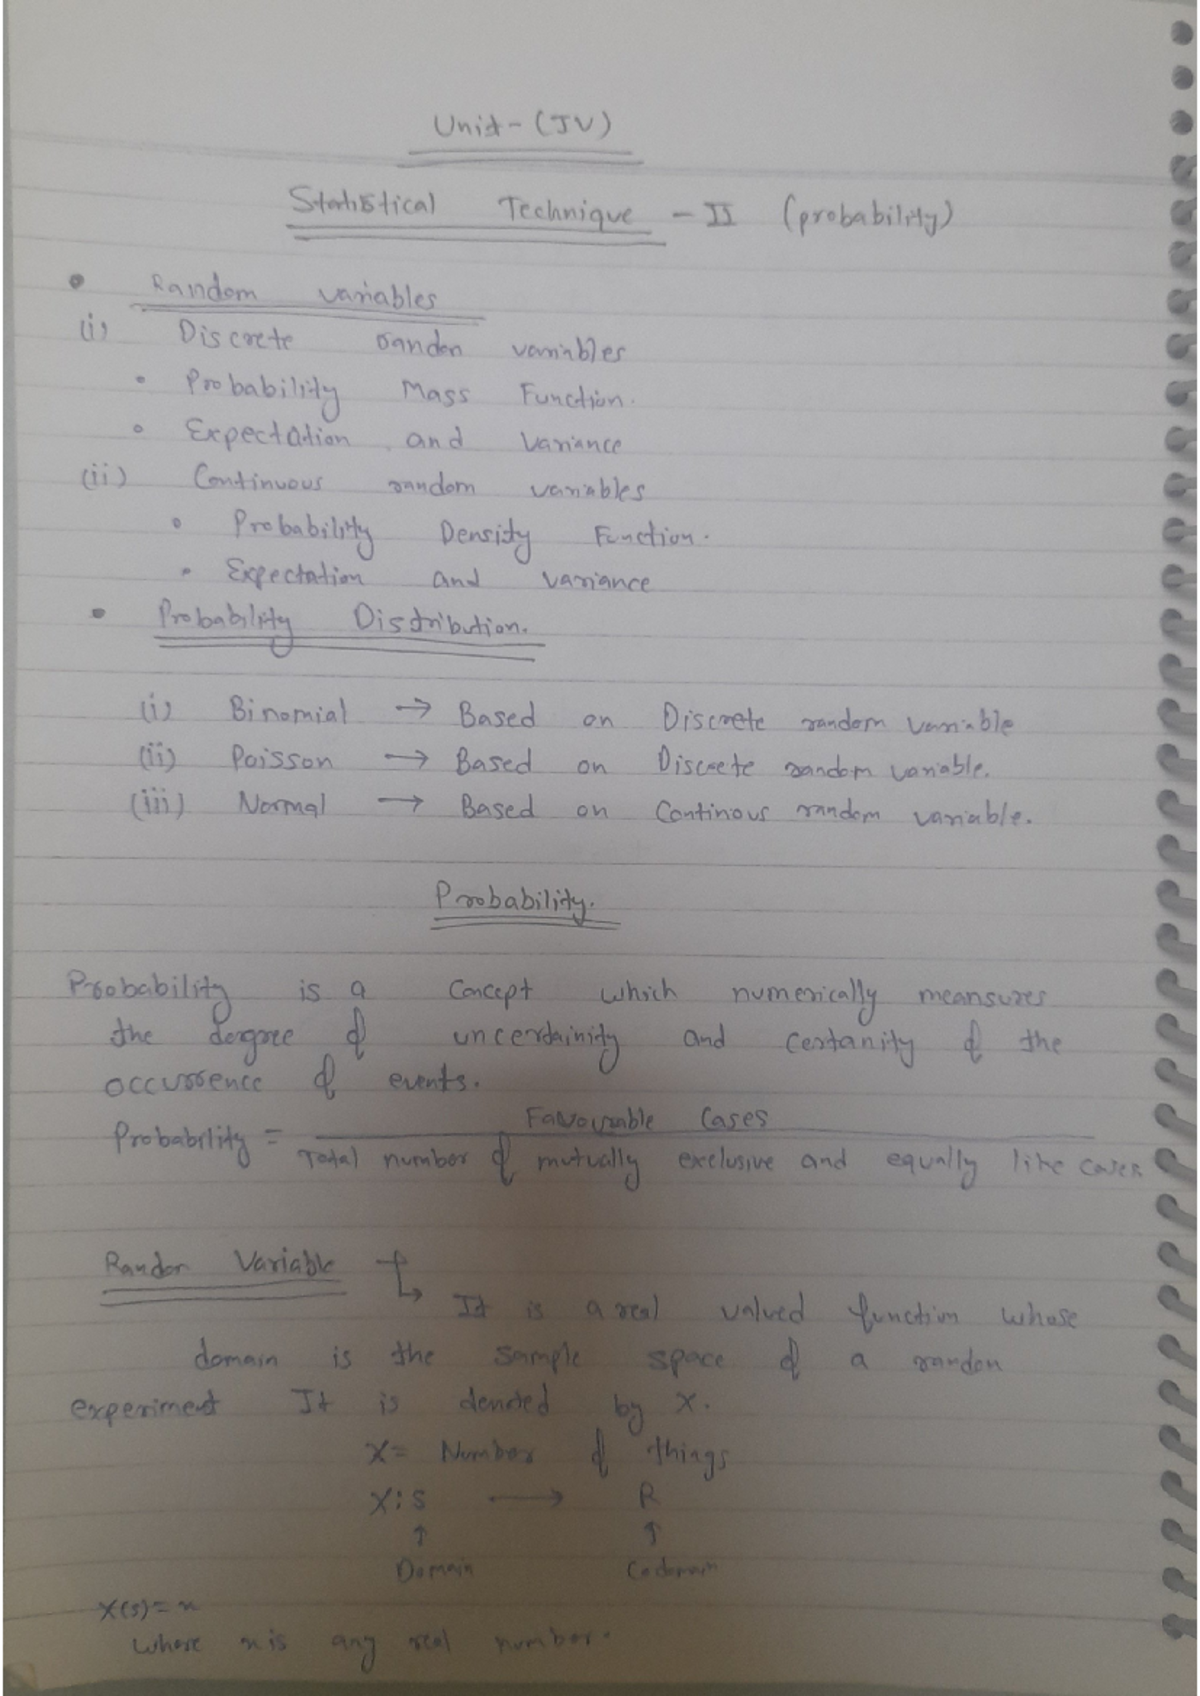 Unit - (IV)
Statistical Technique - II (probability)
• Random variables
(i) Discrete random variables
• Probability Mass Function.
• Expectation and Variance
(ii) Continuous random variables
• Probability Density Function.
• Expectation and variance
• Probability Distribution.
(i) Binomial → Based on Discrete random variable
(ii) Poisson → Based on Discrete random variable.
(iii) Normal → Based on Continous random variable.
Probability.
Probability is a concept which numerically meansures
the dergree of uncertainity and certanity of the
occurrence of events.
Probability = Favourable Cases
Total number of mutually exclusive and equally like cases
Randor Variable ↳ It is a real valued function whose
domain is the sample space of a randon
experiment It is denoted by X.
X = Number of things
X : S → R
↑ ↑
Domain Codomain
X(s) = x
where x is any real number.